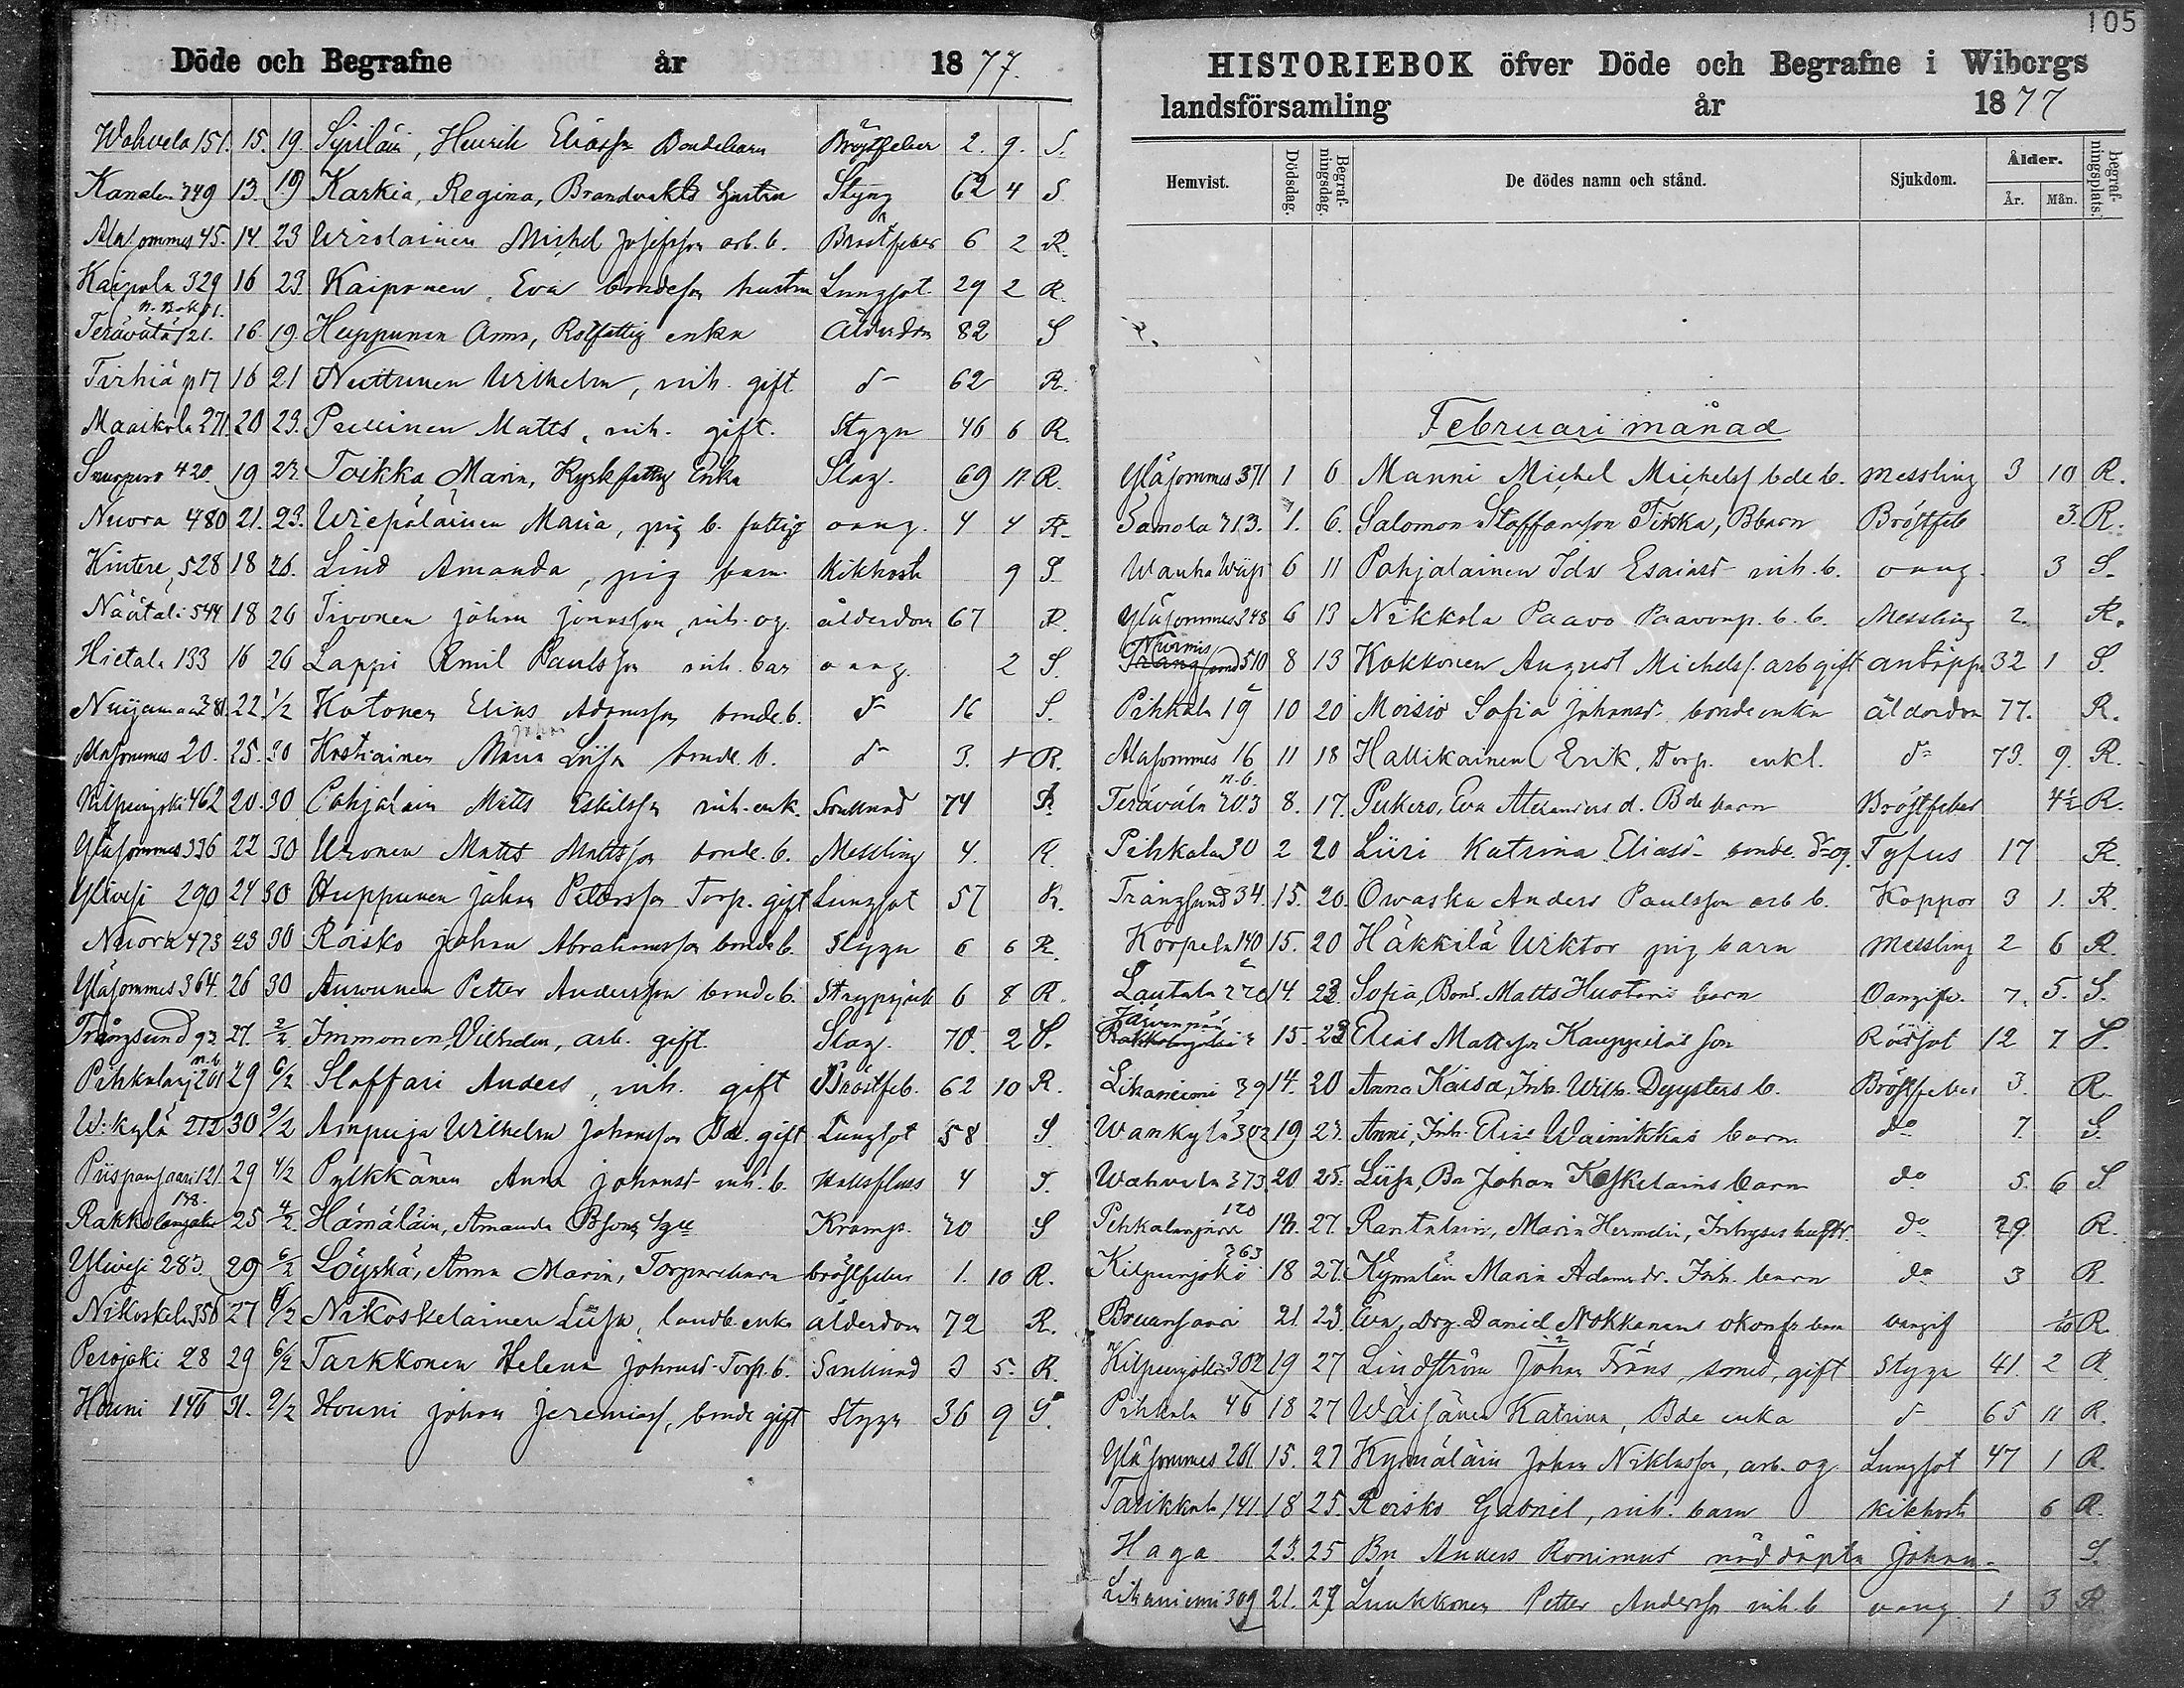 Döde och Begrafne år 1877.
Wahvela 151. 15. 19. Sipiläin, Henrik Eliasson Bondebarn Bröstfeber 2. 9. S.
Kanalen 749 13. 19 Karkia, Regina, Brandvakts hustru Styng 62 4 S
Alasommes 45. 14. 23 Wirolainen Michel Josefsson arb. b. Bröstfeber 6 2 R.
Kaipola 329 16 23 Kaiponen Eva bondeson hustru Lungsot 29 2 R.
Terävälä 121. 16. 19. Huppunen Anna, Rotfattig enka ålderdom 82 S
Tirhiä p17 16 21 Nuttunen Wilhelm, inh. gift d- 62 R.
Maaikola 271. 20 23. Pullinen Matts, inh. gift. Stygn 46 6 R.
420. 19 27. Toikka Maria, Kyrkfattig Enka Slag. 69 11 R.
Nuora 480 21. 23. Wiepäläinen Maria, pig b. fattig oang. 4 4 R.
Kintere 528 18 26. Lind Amanda, pig barn Kikhosta 9 S.
Näätälä 544 18 26 Tivonen Johan Jonasson, inh. og. ålderdom 67 R.
Hietala 133 16 26 Lappi Emil Paulsson inh. bar oang. 2 S.
Nuijamaa 381. 22. 1/2 Hatonen Elias Adamsson bonde b. d- 16 S.
Alasommes 20. 25. 30 Kostiainen Maria Lisa bonde. b. d- 3. + R.
Kilpeenjoki 462 20. 30 Pohjalain Matts Eskilsson inh. enk. 74 R.
Yläsommes 336 22 30 Uronen Matts Mattsson bonde. b. Messling 4. R.
Ylivesi 290 24 30 Huppunen Johan Petersson Torp. gift Lungsot 57 R.
Nuora 473 23 30 Roisko Johan Abrahamsson bonde b. Stygn 6 6 R.
Yläsommes 364. 26 30 Auvunen Petter Andersson bonde b. Strypsjuk 6 8 R.
Trångsund 92 27. 2/2 Immonen, Vilhelm, arb. gift. Slag. 70. 2 S.
Pihkalanj 201 n.b. 29 6/2 Staffari Anders, inh. gift Bröstfeb. 62 10 R.
W:kylä 212 30 2/2 Ampuja Wilhelm Johansson Bde. gift Lungsot 58 S
Piispansaari 121. 29 4/2 Pylkkänen Anna Johansd. inh. b. Hallsfluss 4 S.
Rakkolanjoki 138. 25 4/2 Hämäläin, Amanda Kramp. 20 S
Ylivesi 283. 29 6/2 Löyskä, Anna Maria, Torparebarn bröstfeber 1. 10 R.
Nikoskela 356 27 6/2 Nikoskelainen Lisa, landb. enka ålderdom 72 R.
Perojoki 28 29 6/2 Tarkkonen Helena Johansd. Torp. b. 3 5. R.
Houni 146 31. 2/2 Houni Johan Jeremiass, bonde gift Stygn 36 9 S.
105
HISTORIEBOK öfver Döde och Begrafne i Wiborgs
landsförsamling år 1877
Hemvist. Dödsdag. Begrafningsdag. De dödes namn och stånd. Sjukdom. Ålder. År. Mån. begrafningsplats.
Februari månad
Yläsommes 371 1 6 Manni Michel Michelss bde b. messling 3 10 R.
Samola 713. 1. 6. Salomon Staffansson Tikka, Bbarn Bröstfeb 3. R.
Wanha 6 11 Pohjalainen Ida Esaiasd. inh. b. oang. 3 S.
Yläsommes 348 6 13 Nikkola Paavo Paavonp. b. b. Messling 2. R.
Nurmis 510 8 13 Kokkonen August Michelss. arb gift 32 1 S.
Pihkala 19 10 20 Moisio Sofia Johansd. bonde enka ålderdom 77. R.
Alasommes 16 11 18 Hallikainen Erik, Torp. enkl. d= 73. 9. R.
Terävälä n.b. 203 8. 17. Pukero, Eva Alexanders d. Bde barn Bröstfeber 4½ R.
Pihkala 30 2 20 Liiri Katrina Eliasd. bonde. dr og. Tyfus 17 R.
Trångsund 34. 15. 20. Owaska Anders Paulsson arb b. Koppor 3 1. R.
Korpela 140 15. 20 Häkkilä Wiktor pig barn messling 2 6 R.
Lautala 270 14. 23. Sofia, Bond. Matts Huotari barn Oangifv. 7. 5. S.
Järvenpää 15. 23 Elias Mattsson Kauppilas son Rödsot 12 7 S.
Likaniemi 39 14. 20 Anna Kaisa, Inh. Wilh. b. Bröstfeber 3. R.
Wankylä 302 19 23. Anni, Inh. Elis Wainikkas barn do 7. S.
Wahvela 373. 20 25. Lisa, Bn Johan Koskelains barn do 5. 6 S
Pihkalanjärvi 120 18. 27. Rantalain, Maria Hermelin, Inhyses hustr. do 29 R.
Kilpeenjoki 263 18 27. Kymäläin Maria Adamsdr. Inh. barn do 3 R.
21. 23 Eva, Drg. Daniel Nokkanens barn oangif R.
Kilpeenjoki 302 19 27 Lindström Johan Fräns, smed, gift stygn 41. 2 R
Pihkala 46 18 27 Wäisänen Katrina, Bde enka d- 65 11 R.
Yläsommes 261 15. 27 Kymäläin Johan Niklasson, arb. og Lungsot 47 1 R.
Tarikkala 141. 18 25. Roisko Gabriel, inh. barn Kikhosta 6 R.
Haga 23. 25 Bn Anders Ronimus nöddöpta Johan S.
Likaniemi 309 21. 27 Luukkonen Petter Andersson inh. b oang. 1 3 R